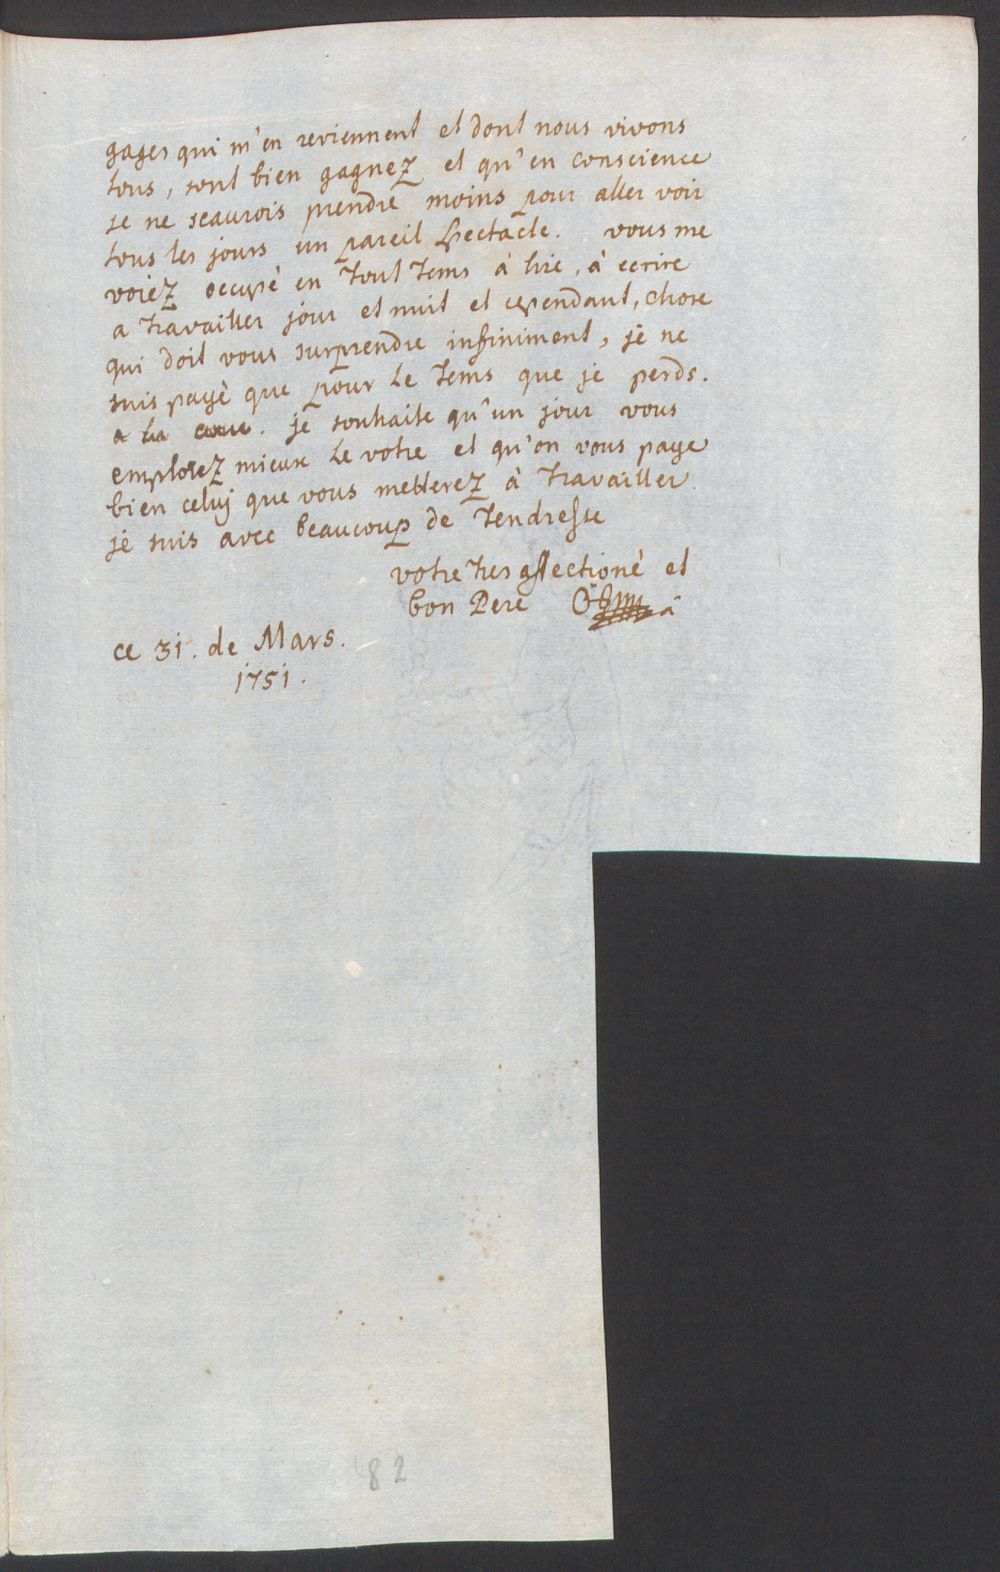 gages qui m'en reviennent et dont nous vivons
tous, sont bien gagnez et qu'en conscience
je ne scaurois prendre moins pour aller voir
tous les jours un pareil spectacle. vous me
voiez occupé en tout tems à lire, à ecrire
a travailler jour et nuit et cependant, chose
qui doit vous surprendre infiniment, je ne
suis payé que pour le tems que je perds.
a la cour. je souhaite qu'un jour vous
emploiez mieux le votre et qu'on vous paye
bien celuj que vous metterez à travailler.
je suis avec beaucoup de tendresse
votre tres affectioné et
bon Pere
ce 31. de Mars.
1751.
82